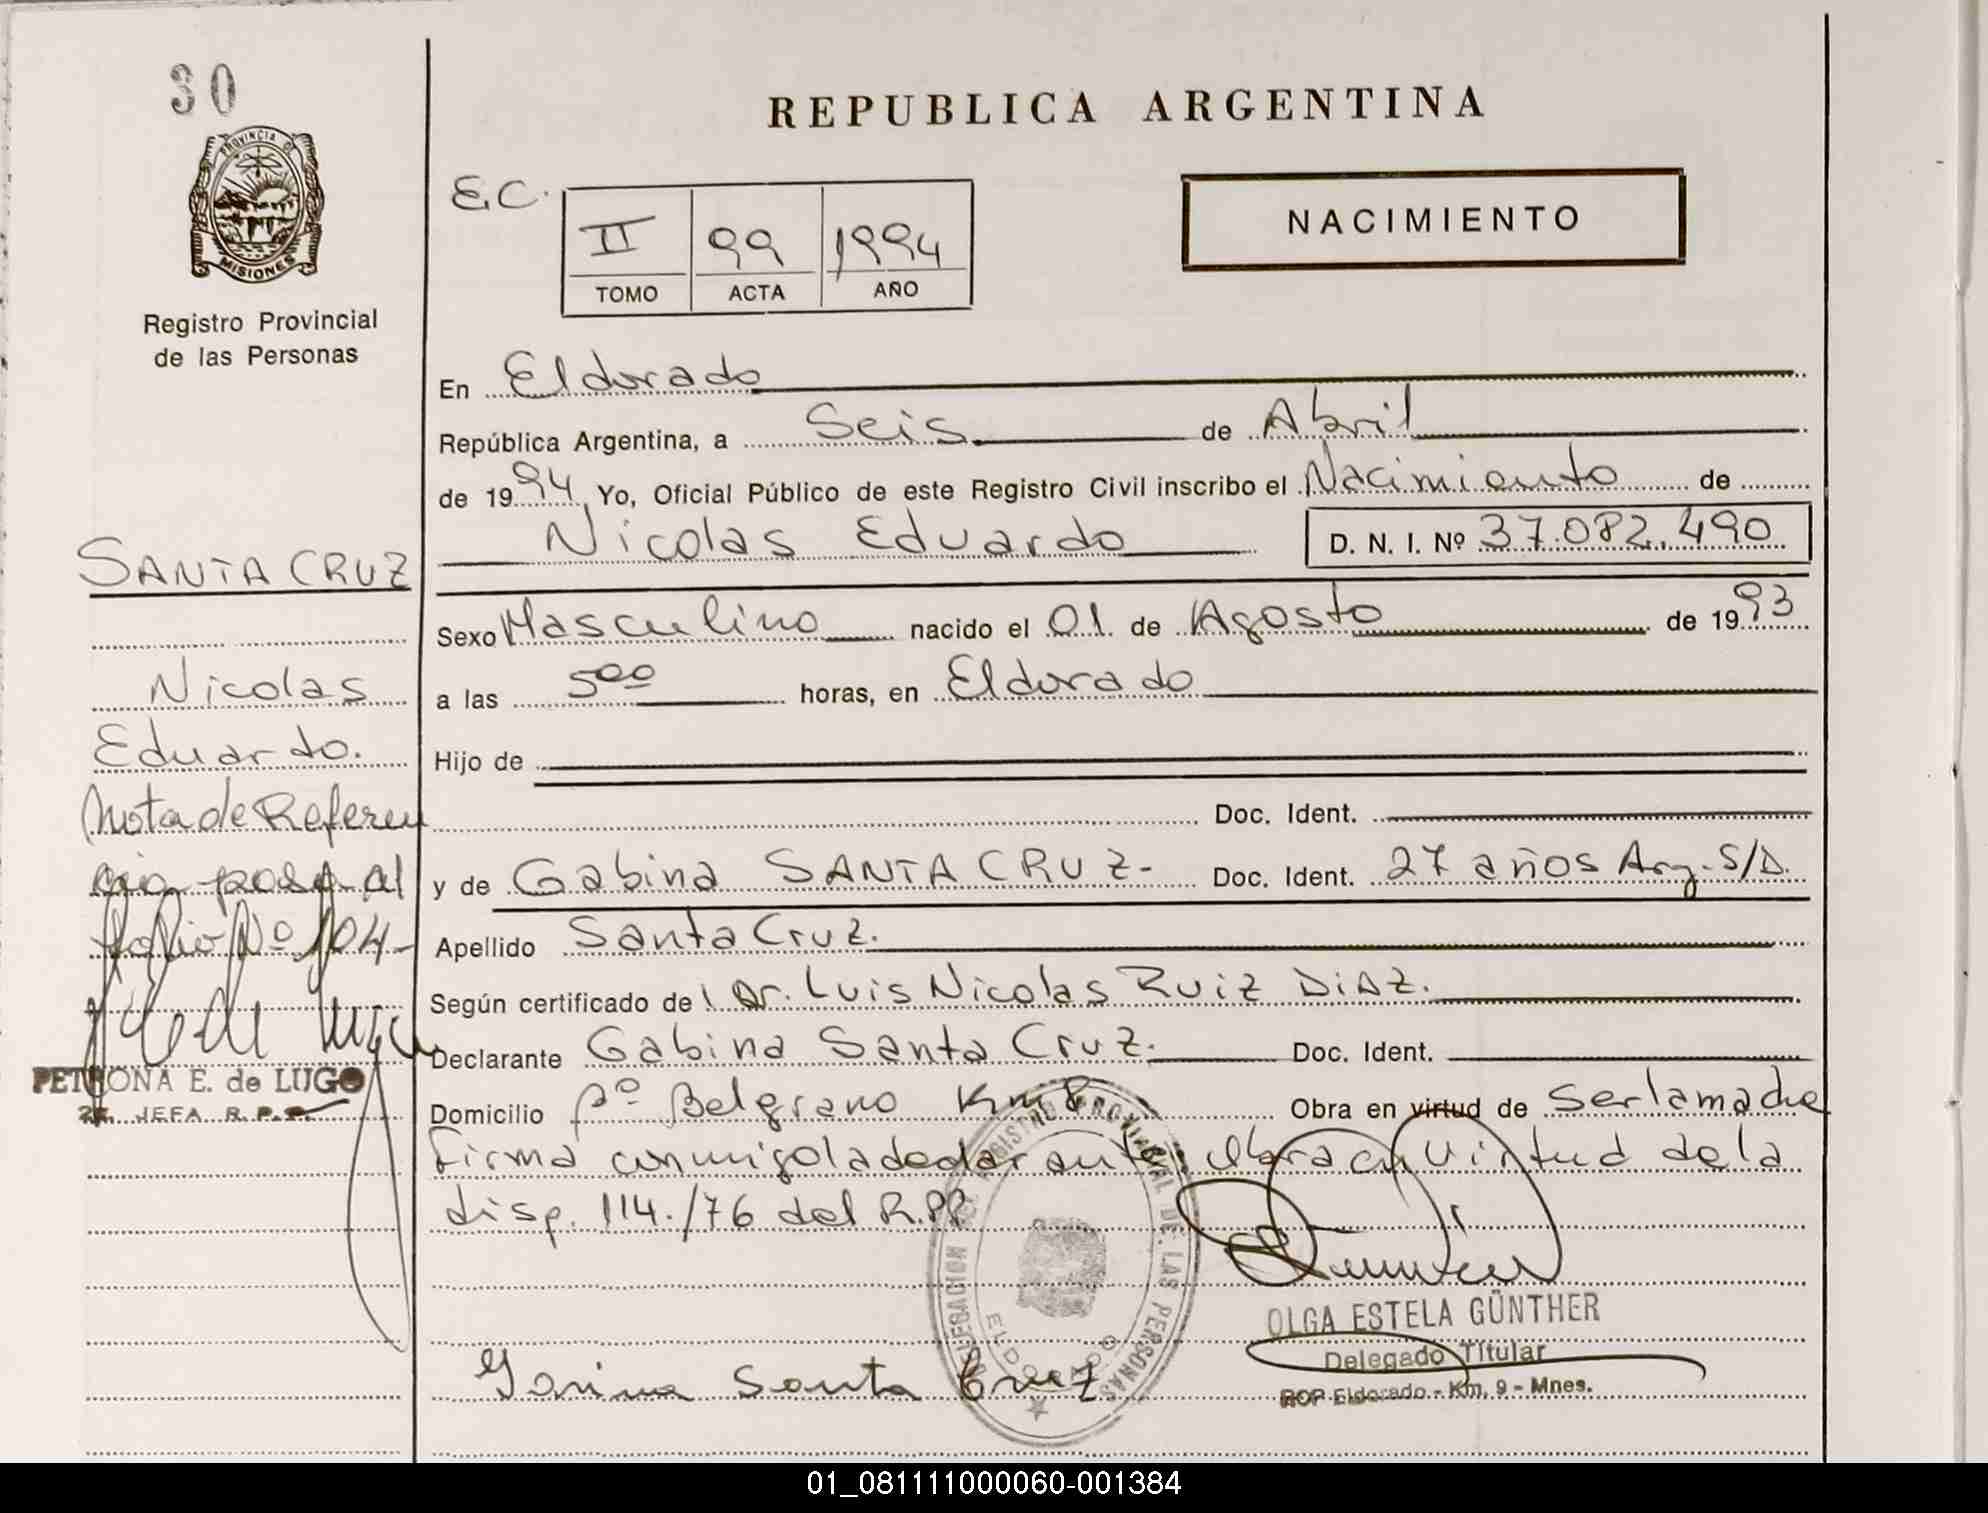 30
PROVINCIA DE
MISIONES
Registro Provincial
de las Personas
REPUBLICA ARGENTINA
E.C.
II 99 1994
TOMO ACTA AÑO
NACIMIENTO
En Eldorado
República Argentina, a Seis de Abril
de 1994 Yo, Oficial Público de este Registro Civil inscribo el Nacimiento de
Nicolas Eduardo D. N. I. Nº 37.082.490
Sexo Masculino nacido el 01 de Agosto de 1993
a las 5 00 horas, en Eldorado
Hijo de
Doc. Ident.
y de Gabina SANTA CRUZ- Doc. Ident. 27 años Arg. S/D.
Apellido Santa Cruz.
Según certificado de Dr. Luis Nicolas Ruiz Diaz.
Declarante Gabina Santa Cruz. Doc. Ident.
Domicilio Pº Belgrano Km 8 Obra en virtud de ser la madre
Firma conmigo la declarante. Obra en virtud de la
disp. 114./76 del R.PP
SANTA CRUZ
Nicolas
Eduardo.
Nota de Referen
cia pasa al
folio Nº 104-
PETRONA E. de LUGO
JEFA R.P.P.
DELEGACION REGISTRO PROVINCIAL DE LAS PERSONAS
ELDORADO
OLGA ESTELA GÜNTHER
Delegado Titular
RCP Eldorado - Km. 9 - Mnes.
Santa Cruz
01_081111000060-001384